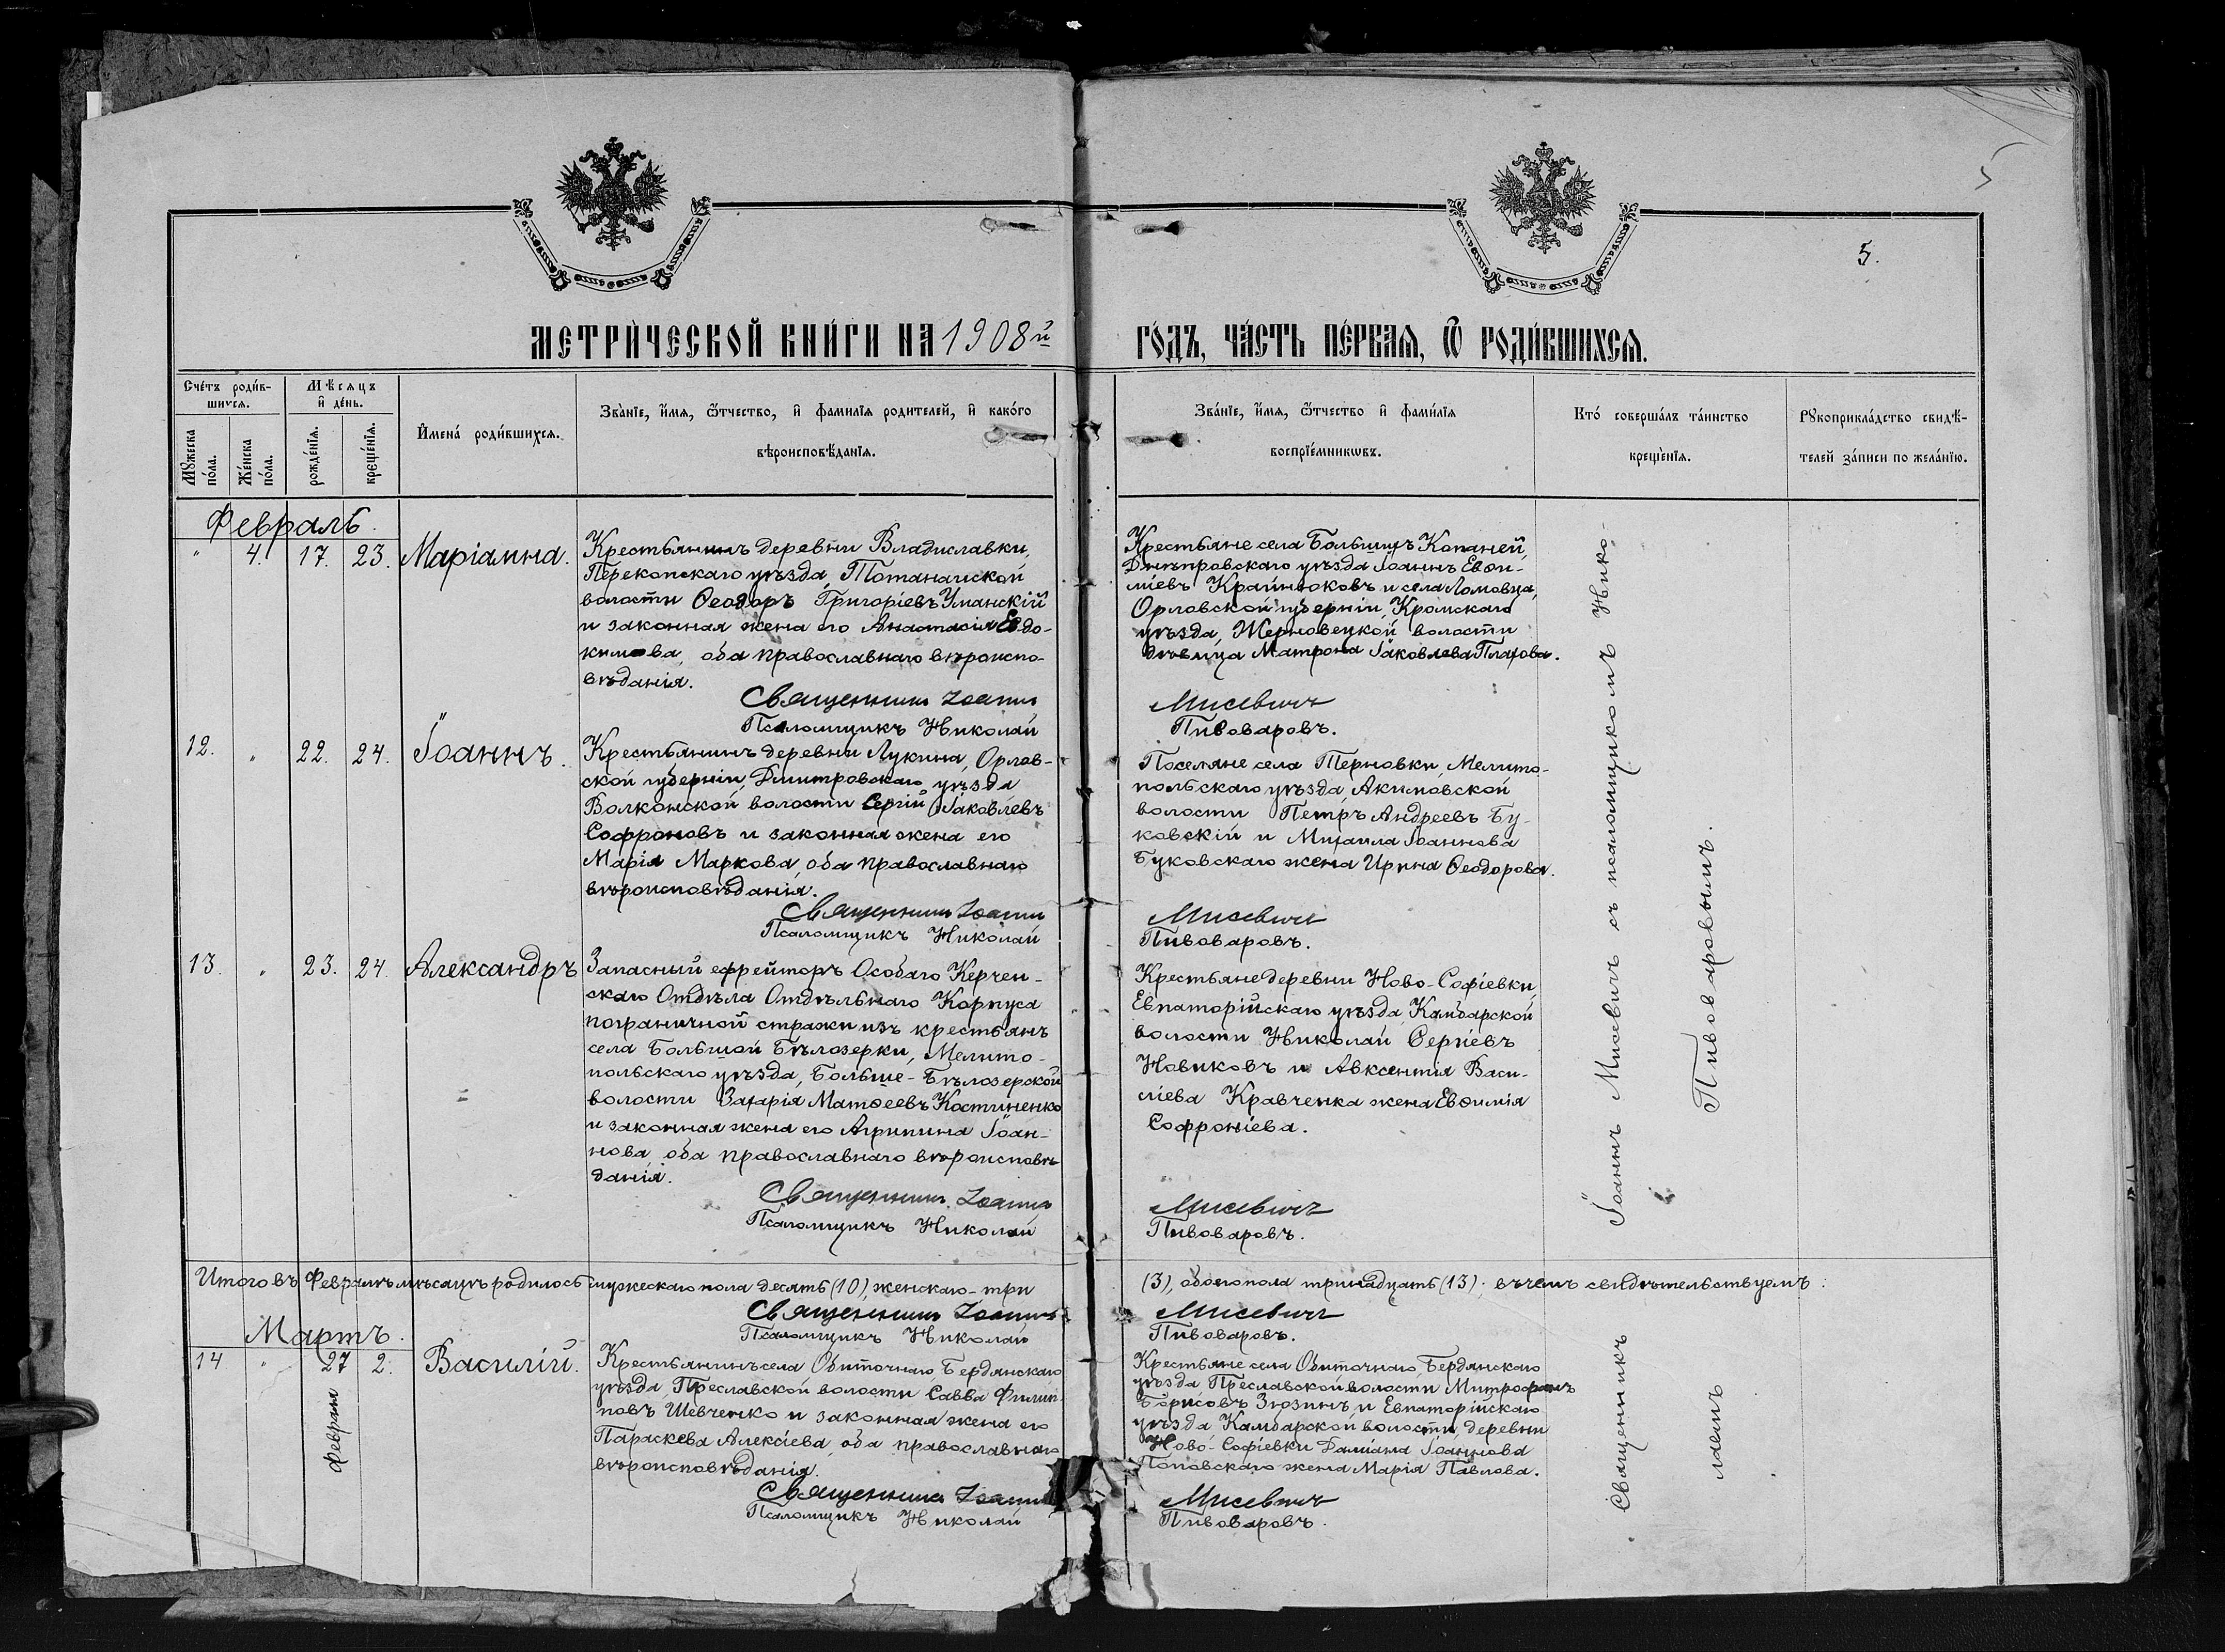 5
5.
МЕТРИ́ЧЕСКОЙ КНИ́ГИ НА 1908й ГО́ДЪ, ЧА́СТЬ ПЕ́РВАѦ, Ѿ РОДИ́ВШИХСѦ.
Сче́тъ роди́в-
шихсѧ.
Мѣсѧцъ
и де́нь.
Мꙋжеска
по́ла.
Же́нска
по́ла.
рожде́нїѧ.
креще́нїѧ.
И҆мена́ роди́вшихсѧ.
Зва́нїе, и҆́мѧ, ѻ҆́тчество, и҆ фами́лїѧ родителей, и҆ како́гѡ
вѣроисповѣ́данїѧ.
Зва́нїе, и҆́мѧ, ѻ҆́тчество и҆ фами́лїѧ
воспрїе́мникѡвъ.
Кто́ соверша́лъ та́инство
креще́нїѧ.
Рꙋкоприкла́дство свидѣ́-
телей за́писи по жела́нїю.
Февраль.
" 4. 17. 23. Маріамна.
Крестьянинъ деревни Владиславки,
Перекопскаго уѣзда, Тотанайской
волости Ѳеодоръ Григоріевъ Уманскій
и законная жена его Анастасія Евдо-
кимова, оба православнаго вѣроиспо-
вѣданія.
Священникъ Іоаннъ
Псаломщикъ Николай
Крестьяне села Большихъ Копаней,
Днѣпровскаго уѣзда Іоаннъ Евѳи-
міевъ Крайнюковъ и села Ломовца,
Орловской губерніи, Кромскаго
уѣзда, Жерновецкой волости
дѣвица Матрона Іаковлева Плахова.
Мисевичъ
Пивоваровъ.
12. " 22. 24. Іоаннъ.
Крестьянинъ деревни Лукина, Орлов-
ской губерніи, Дмитровскаго уѣзда
Волконской волости Сергій Іаковлевъ
Софроновъ и законная жена его
Марія Маркова, оба православнаго
вѣроисповѣданія.
Священникъ Іоаннъ
Псаломщикъ Николай
Поселяне села Терновки, Мелито-
польскаго уѣзда Акимовской
волости Петръ Андреевъ Бу-
ковскій и Михаила Іоаннова
Буковскаго жена Ирина Ѳеодорова.
Мисевичъ
Пивоваровъ.
13. " 23. 24. Александръ
Запасный ефрейторъ Особаго Керчен-
скаго Отдѣла Отдѣльнаго Корпуса
пограничной стражи изъ крестьянъ
села Большой Бѣлозерки, Мелито-
польскаго уѣзда, Больше-Бѣлозерской
волости Захарія Матѳеевъ Костиненко
и законная жена его Агрипина Іоан-
нова, оба православнаго вѣроисповѣ-
данія.
Священникъ Іоаннъ
Псаломщикъ Николай
Крестьяне деревни Ново-Софіевки,
Евпаторійскаго уѣзда, Камбарской
волости Николай Сергіевъ
Новиковъ и Авксентія Васи-
ліева Кравченка жена Евѳимія
Софроніева.
Мисевичъ
Пивоваровъ.
Іоаннъ Мисевичъ съ псаломщикомъ Нико-
Пивоваровымъ.
Итого въ Февралѣ мѣсяцѣ родилось мужескаго пола десять (10), женскаго-три (3), обоего пола тринадцать (13); въ чемъ свидѣтельствуемъ:
Священникъ Іоаннъ Мисевичъ
Псаломщикъ Николай Пивоваровъ.
Мартъ.
14. " 27 2. Василій.
Февраля
Крестьянинъ села Обиточнаго, Бердянскаго
уѣзда, Преславской волости Савва Филип-
повъ Шевченко и законная жена его
Параскева Алексіева, оба православнаго
вѣроисповѣданія.
Священникъ Іоаннъ
Псаломщикъ Николай
Крестьяне села Обиточнаго, Бердянскаго
уѣзда Преславской волости Митрофанъ
Борисовъ Зюзинъ и Евпаторійскаго
уѣзда, Камбарской волости, деревни
Ново-Софіевки Даміана Іоаннова
Поповскаго жена Марія Павлова.
Мисевичъ
Пивоваровъ.
Священникъ
лаемъ